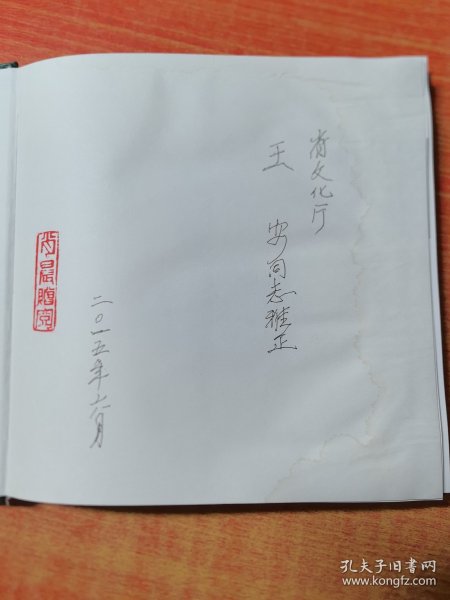 省文化厅
王 安同志雅正
二〇一五年六月
孔夫子旧书网
www.kongfz.com